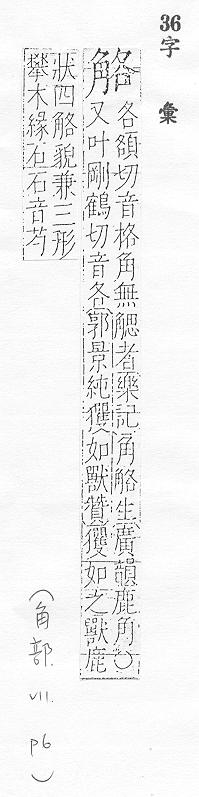 36
字彙
觡
各額切音格角無䚡者樂記角觡生廣韻鹿角〇
又叶剛鶴切音各郭景純玃如獸贊玃如之獸鹿
狀四觡貌兼三形
攀木緣石石音芍
(角部
VII.
p6)